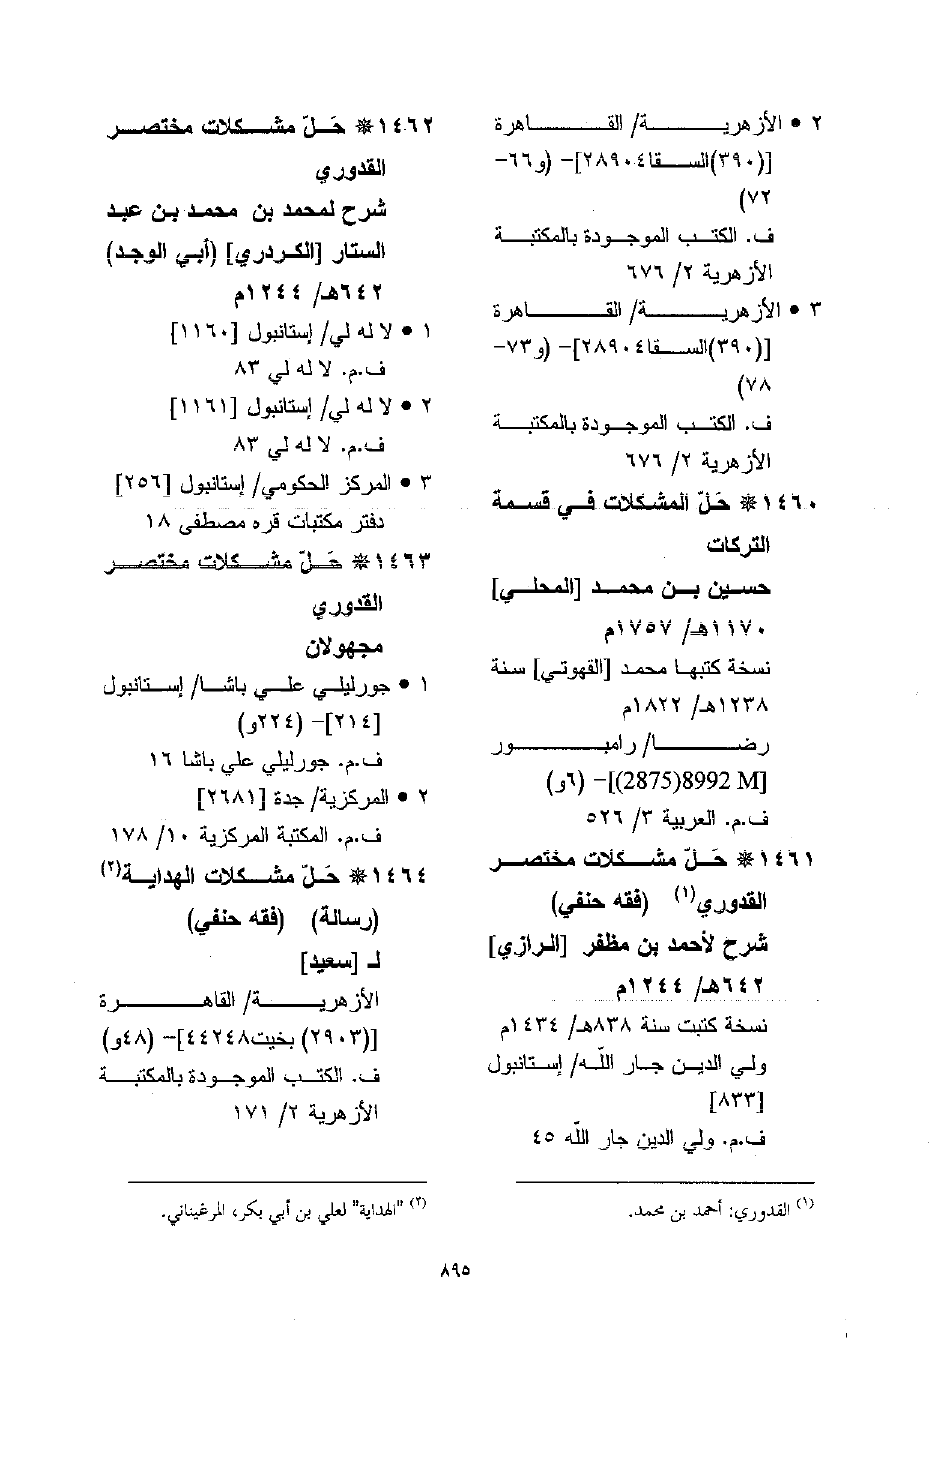 ٢ • الأزهرية/ القاهرة
[(٣٩٠)السقا٢٨٩٠٤]– (و٦٦–
٧٢)
ف. الكتب الموجودة بالمكتبة
الأزهرية ٢/ ٦٧٦
٣ • الأزهرية/ القاهرة
[(٣٩٠)السقا٢٨٩٠٤]– (و٧٣–
٧٨)
ف. الكتب الموجودة بالمكتبة
الأزهرية ٢/ ٦٧٦
١٤٦٠* حَلّ المشكلات في قسمة
التركات
حسين بن محمد [المحلي]
١١٧٠هـ/ ١٧٥٧م
نسخة كتبها محمد [القهوتي] سنة
١٢٣٨هـ/ ١٨٢٢م
رضا/ رامبور
[8992 M(2875)]– (٦و)
ف.م. العربية ٣/ ٥٢٦
١٤٦١* حَلّ مشكلات مختصر
القدوري(١) (فقه حنفي)
شرح لأحمد بن مظفر [الرازي]
٦٤٢هـ/ ١٢٤٤م
نسخة كتبت سنة ٨٣٨هـ/ ١٤٣٤م
ولي الدين جار اللّه/ إستانبول
[٨٣٣]
ف.م. ولي الدين جار اللّه ٤٥
(١) القدوري: أحمد بن محمد.
١٤٦٢* حَلّ مشكلات مختصر
القدوري
شرح لمحمد بن محمد بن عبد
الستار [الكردري] (أبي الوجد)
٦٤٢هـ/ ١٢٤٤م
١ • لا له لي/ إستانبول [١١٦٠]
ف.م. لا له لي ٨٣
٢ • لا له لي/ إستانبول [١١٦١]
ف.م. لا له لي ٨٣
٣ • المركز الحكومي/ إستانبول [٢٥٦]
دفتر مكتبات قره مصطفى ١٨
١٤٦٣* حَلّ مشكلات مختصر
القدوري
مجهولان
١ • جورليلي علي باشا/ إستانبول
[٢١٤]– (٢٢٤و)
ف.م. جورليلي علي باشا ١٦
٢ • المركزية/ جدة [٢٦٨١]
ف.م. المكتبة المركزية ١٠/ ١٧٨
١٤٦٤* حَلّ مشكلات الهداية(٢)
(رسالة) (فقه حنفي)
لـ [سعيد]
الأزهرية/ القاهرة
[(٢٩٠٣) بخيت٤٤٢٤٨]– (٤٨و)
ف. الكتب الموجودة بالمكتبة
الأزهرية ٢/ ١٧١
(٢) "الهداية" لعلي بن أبي بكر، المرغيناني.
٨٩٥